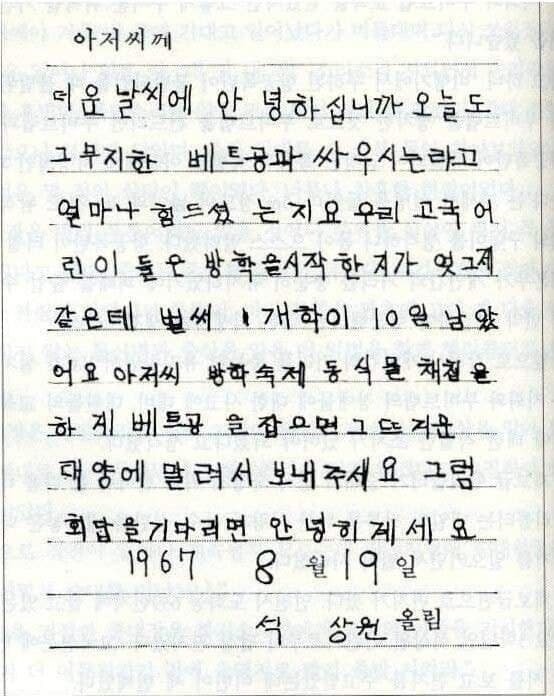 아저씨께
더운 날씨에 안녕하십니까 오늘도
그무지한 베트공과 싸우시는라고
얼마나 힘드셨는지요 우리 고국어
린이들은 방학을시작한지가 엊그제
같은데 벌써 개학이 10일 남았
어요 아저씨 방학숙제 동식물 채집을
하게 베트공을 잡으면 그 뜨거운
태양에 말려서 보내주세요 그럼
회답을기다리면 안녕히계세요
1967 8월 19일
석 상원 올림